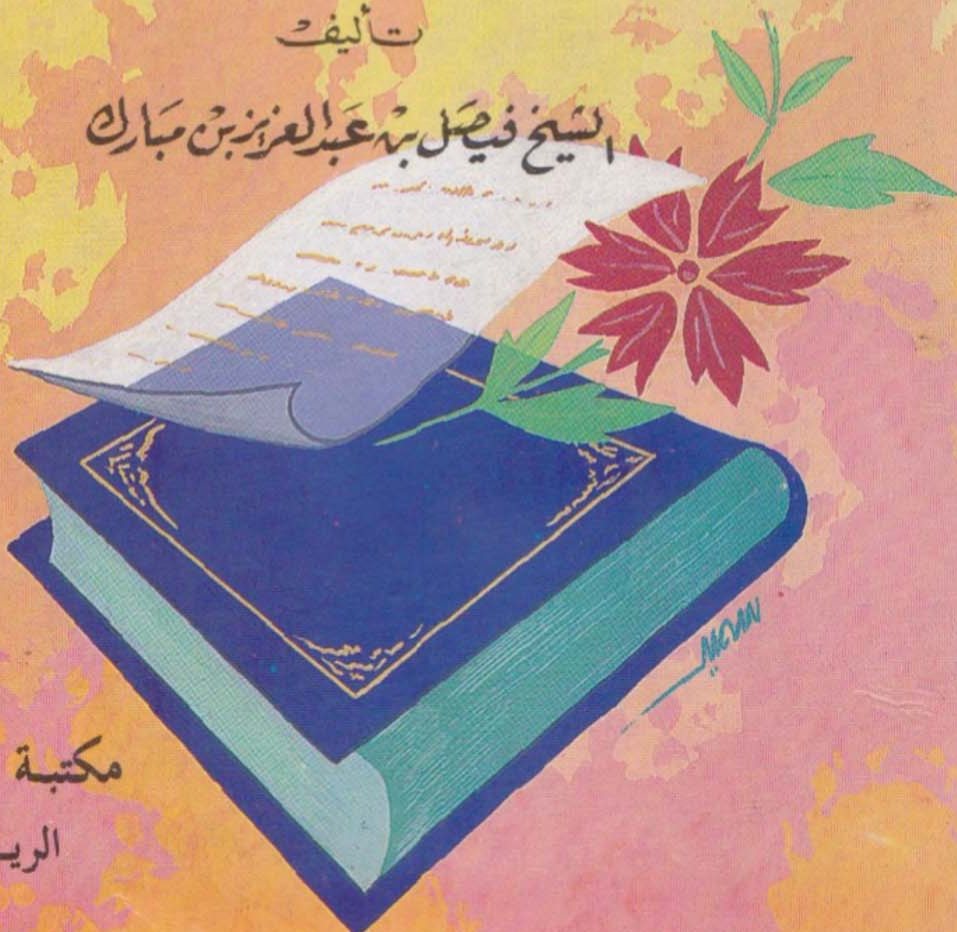 تأليف
الشيخ فيصَل بن عَبدالعزيز بن مبَارك
مكتبة
الريـ